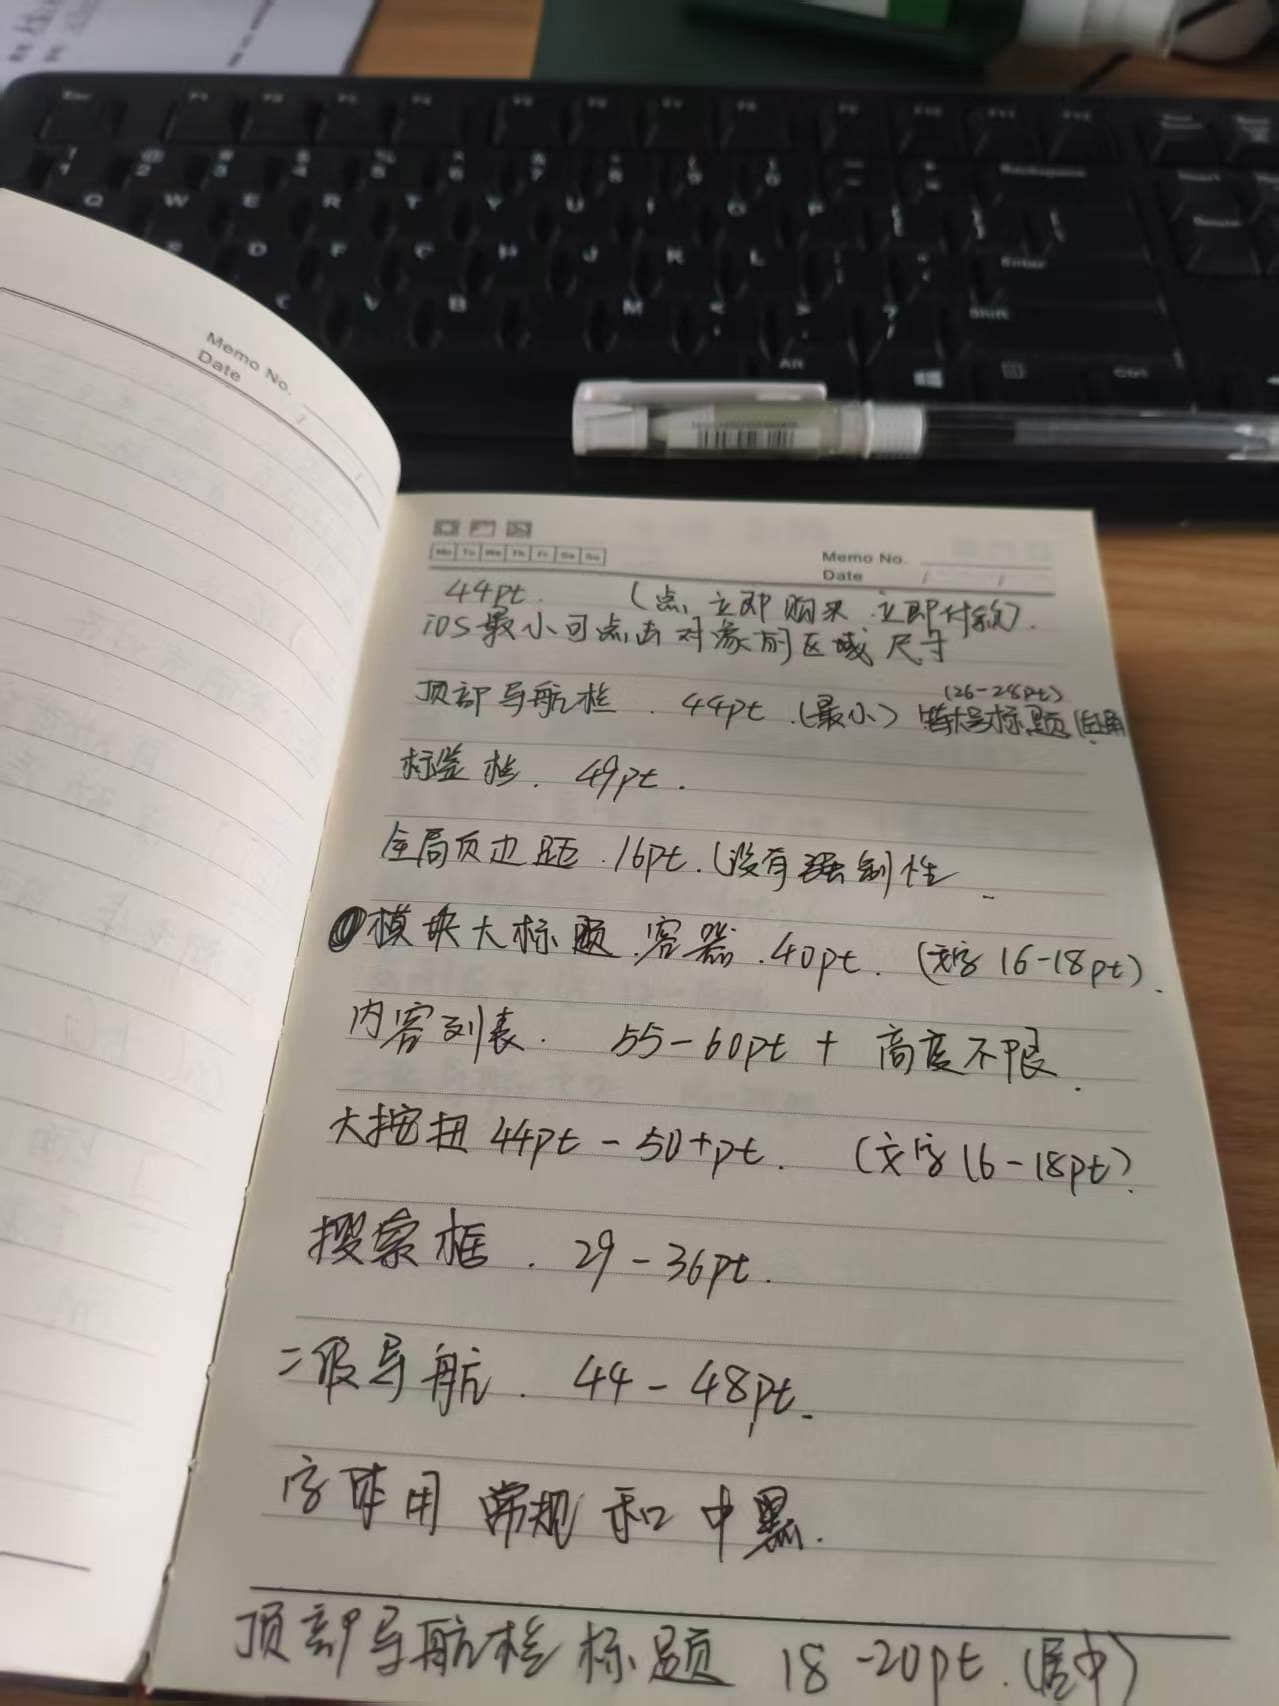 Memo No.
Date
Mo Tu We Th Fr Sa Su
Memo No.
Date / /
44pt. (点, 立即购买. 立即付款).
iOS最小可点击对象的区域尺寸
(26-28pt)
顶部导航栏. 44pt.(最小) 特大号标题
标签栏. 49pt.
全局页边距.16pt.(没有强制性
模块大标题.容器.40pt. (文字16-18pt).
内容列表. 55-60pt + 高度不限.
大按扭 44pt - 50+pt. (文字16-18pt).
搜索框. 29-36pt.
二级导航. 44-48pt.
字体用 常规和中黑.
顶部导航栏标题 18-20pt.(居中)